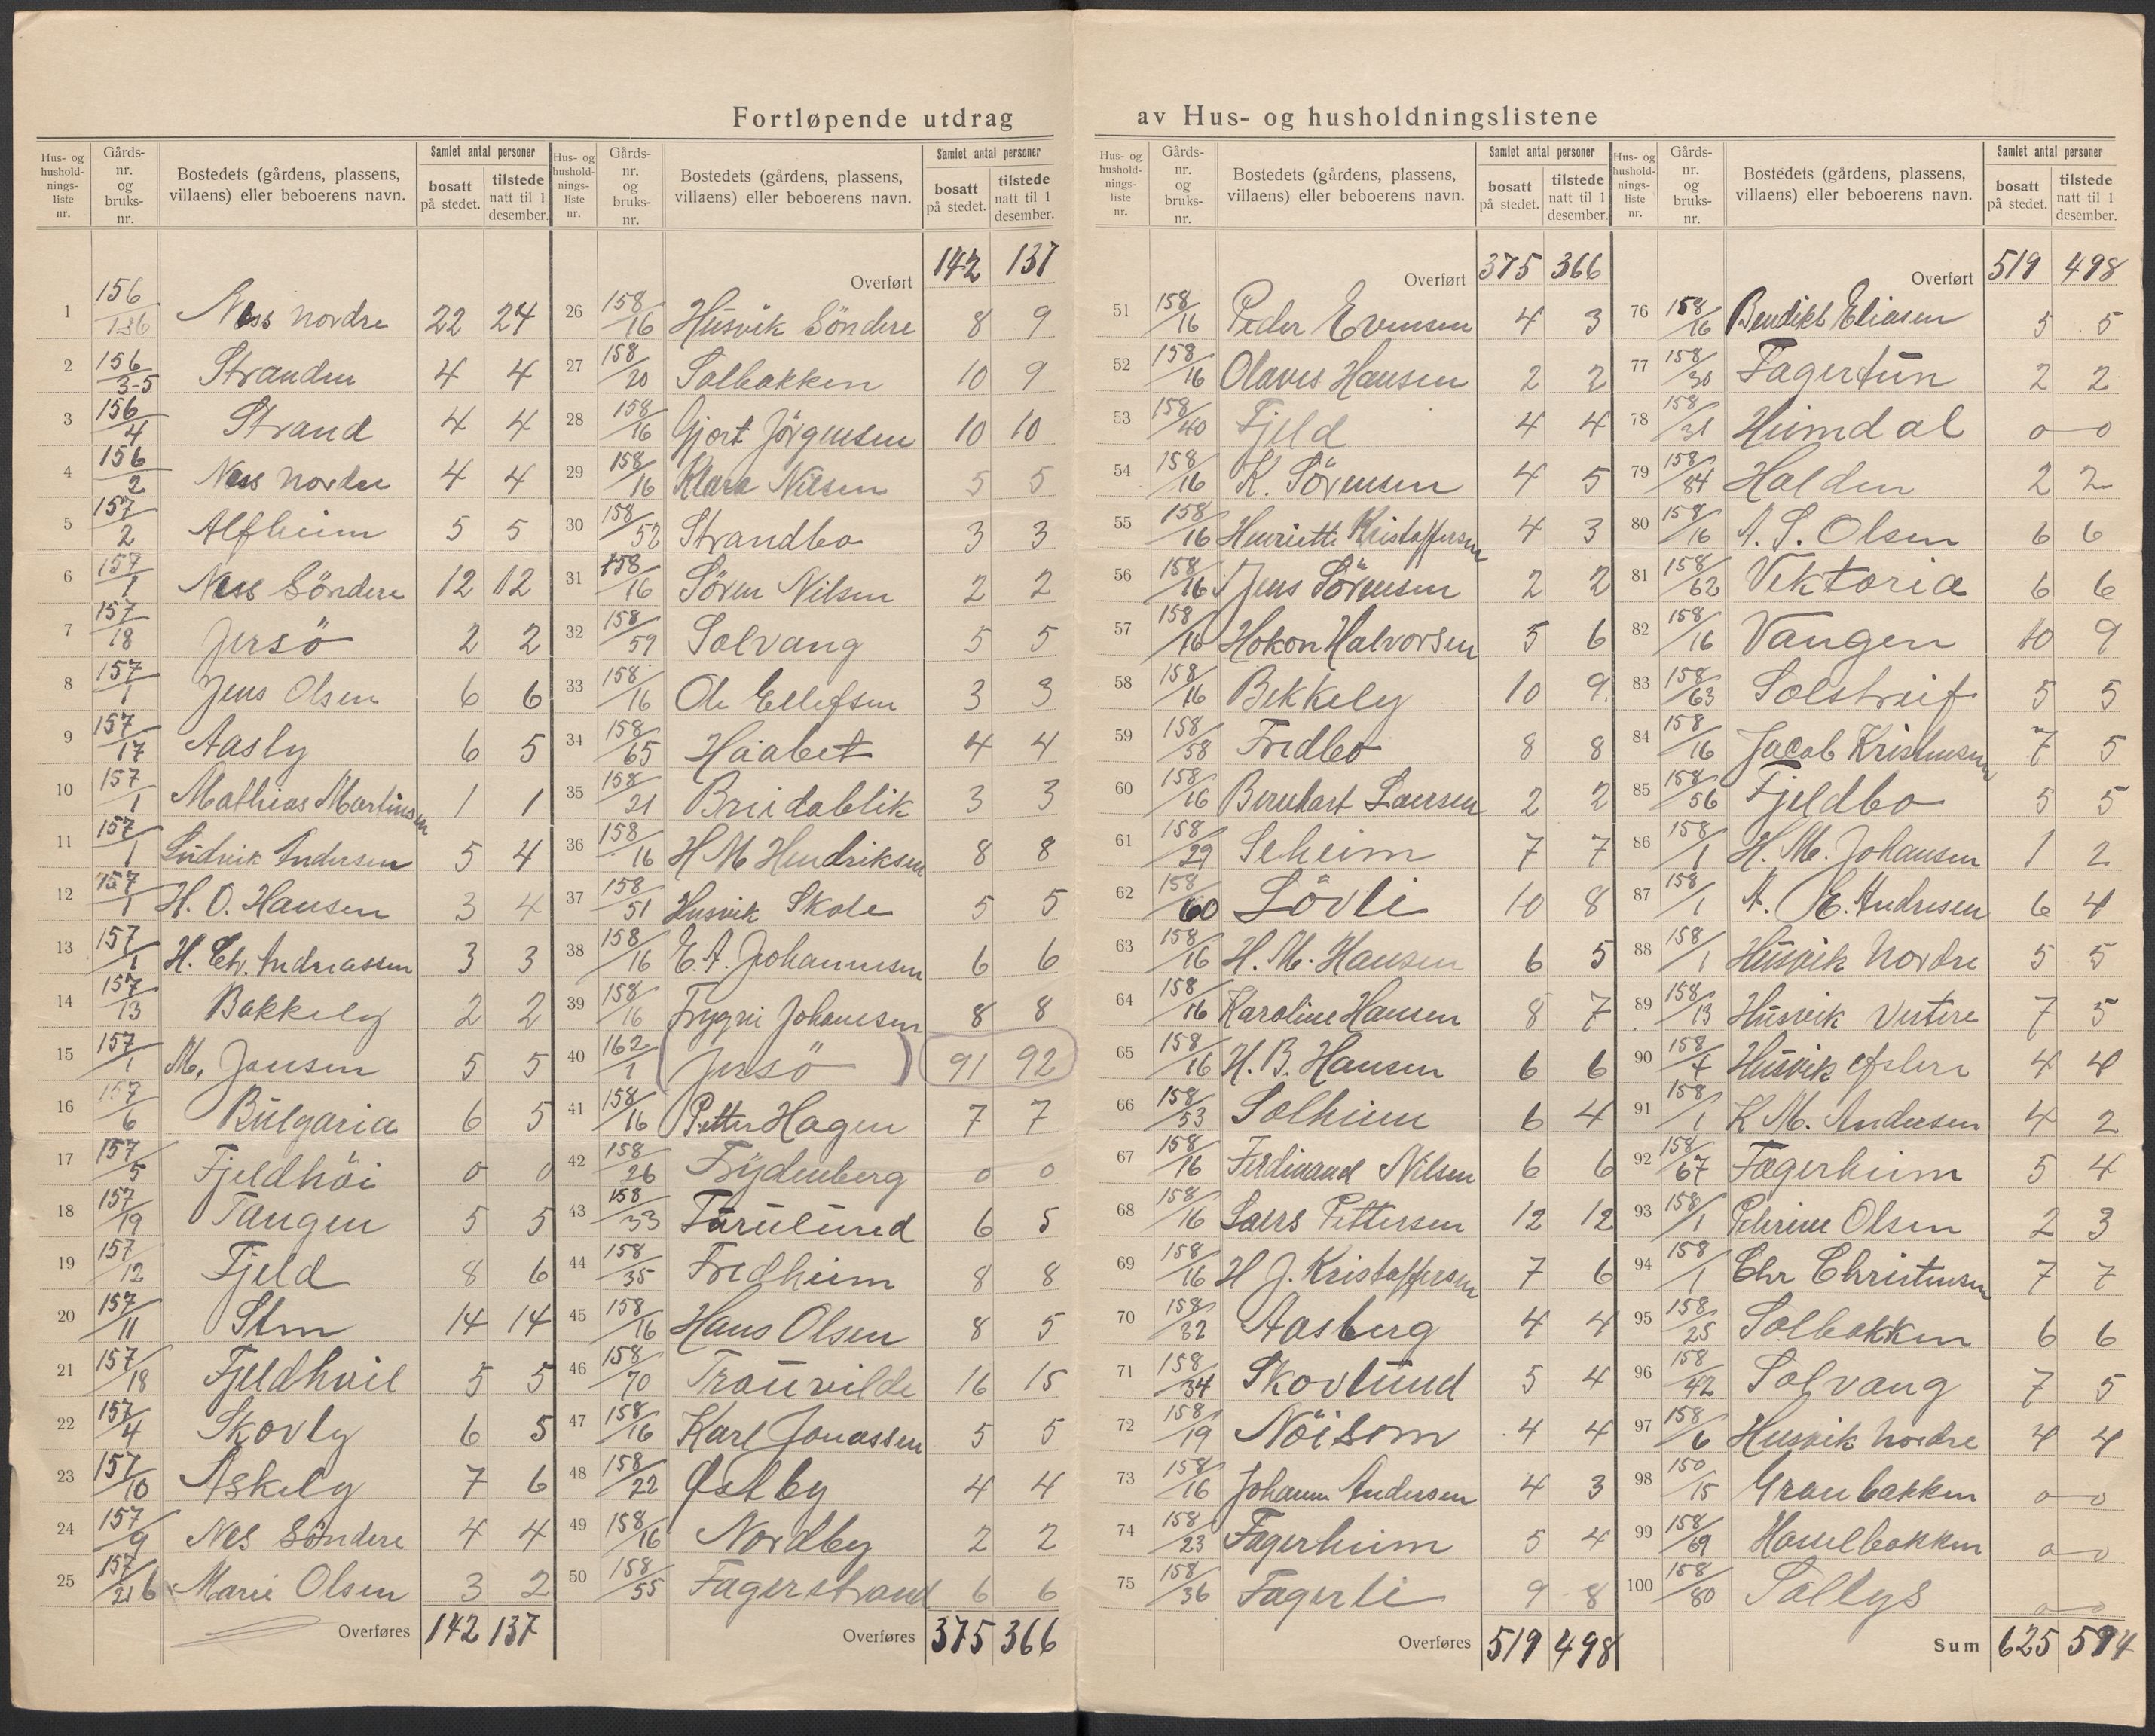 Fortløpende utdrag av Hus- og husholdningslistene
Hus- og husholdningsliste nr. | Gårdsnr. og bruksnr. | Bostedets (gårdens, plassens, villaens) eller beboerens navn. | Samlet antal personer bosatt på stedet. | tilstede natt til 1 desember.
1 156/136 Ness Nordre 22 24
2 156/3-5 Stranden 4 4
3 156/4 Strand 4 4
4 156/2 Ness Nordre 4 4
5 157/2 Alfheim 5 5
6 157/1 Ness Söndere 12 12
7 157/18 Jersö 2 2
8 157/1 Jens Olsen 6 6
9 157/17 Aasly 6 5
10 157/1 Mathias Martinsen 1 1
11 157/1 Ludvik Andersen 5 4
12 157/1 H. O. Hansen 3 4
13 157/1 H. Chr. Andreassen 3 3
14 157/13 Bakkely 2 2
15 157/1 M. Jansen 5 5
16 157/6 Bulgaria 6 5
17 157/5 Fjeldhöi 0 0
18 157/19 Tangen 5 5
19 157/12 Fjeld 8 6
20 157/11 Stm 14 14
21 157/18 Fjeldhvil 5 5
22 157/4 Skovly 6 5
23 157/10 Askely 7 6
24 157/9 Nes Söndere 4 4
25 157/216 Marie Olsen 3 2
Overføres 142 137
Hus- og husholdningsliste nr. | Gårdsnr. og bruksnr. | Bostedets (gårdens, plassens, villaens) eller beboerens navn. | Samlet antal personer bosatt på stedet. | tilstede natt til 1 desember.
Overført 142 137
26 158/16 Husvik Söndere 8 9
27 158/20 Solbakken 10 9
28 158/16 Gjort Jörgensen 10 10
29 158/16 Klara Nilsen 5 5
30 158/52 Strandbo 3 3
31 158/16 Sören Nilsen 2 2
32 158/59 Solvang 5 5
33 158/16 Ole Ellefsen 3 3
34 158/65 Haabet 4 4
35 158/21 Breidablik 3 3
36 158/16 H M Hendriksen 8 8
37 158/51 Husvik Skole 5 5
38 158/16 E. A. Johannesen 6 6
39 158/16 Trygve Johansen 8 8
40 162/1 (Jersö) 91 92
41 158/16 Petter Hagen 7 7
42 158/26 Frydenberg 0 0
43 158/33 Furulund 6 5
44 158/35 Fredheim 8 8
45 158/16 Hans Olsen 8 5
46 158/70 Trouvilde 16 15
47 158/16 Karl Jonassen 5 5
48 158/22 Østby 4 4
49 158/16 Nordby 2 2
50 158/55 Fagerstrand 6 6
Overføres 375 366
Hus- og husholdningsliste nr. | Gårdsnr. og bruksnr. | Bostedets (gårdens, plassens, villaens) eller beboerens navn. | Samlet antal personer bosatt på stedet. | tilstede natt til 1 desember.
Overført 375 366
51 158/16 Peder Evensen 4 3
52 158/16 Olaves Hansen 2 2
53 158/40 Fjeld 4 4
54 158/16 K. Sörensen 4 5
55 158/16 Henriette Kristoffersen 4 3
56 158/16 Jens Sörensen 2 2
57 158/16 Hokon Halvorsen 5 6
58 158/16 Bekkely 10 9
59 158/58 Fredbo 8 8
60 158/16 Bernhart Laersen 2 2
61 158/29 Seheim 7 7
62 158/60 Lövli 10 8
63 158/16 H. M. Hansen 6 5
64 158/16 Karoline Hansen 8 7
65 158/16 H. B. Hansen 6 6
66 158/53 Solheim 6 4
67 158/16 Ferdinand Nilsen 6 6
68 158/16 Laers Pettersen 12 12
69 158/16 H J. Kristoffersen 7 6
70 158/32 Aasberg 4 4
71 158/34 Skovlund 5 4
72 158/19 Nöisom 4 4
73 158/16 Johann Andersen 4 3
74 158/23 Fagerheim 5 4
75 158/36 Fagerli 9 8
Overføres 519 498
Hus- og husholdningsliste nr. | Gårdsnr. og bruksnr. | Bostedets (gårdens, plassens, villaens) eller beboerens navn. | Samlet antal personer bosatt på stedet. | tilstede natt til 1 desember.
Overført 519 498
76 158/16 Bendikt Eliasen 5 5
77 158/30 Fagertun 2 2
78 158/31 Heimdal 0 0
79 158/84 Halden 2 2
80 158/16 A. S. Olsen 6 6
81 158/62 Vektoria 6 6
82 158/16 Vangen 10 9
83 158/63 Solstreif 5 5
84 158/16 Jacob Kristensen 7 5
85 158/56 Fjeldbo 5 5
86 158/1 H. M. Johansen 1 2
87 158/1 A. E. Andresen 6 4
88 158/1 Husvik Nordre 5 5
89 158/13 Husvik Vestere 7 5
90 158/7 Husvik Østere 4 4
91 158/1 K M. Andersen 4 2
92 158/67 Fagerheim 5 4
93 158/1 Petrine Olsen 2 3
94 158/1 Chr Christensen 7 7
95 158/25 Solbakken 6 6
96 158/42 Solvang 7 5
97 158/6 Husvik Nordre 4 4
98 150/15 Granbakken 0 0
99 158/69 Hasselbakken 0 0
100 158/80 Sollys 0 0
Sum 625 594